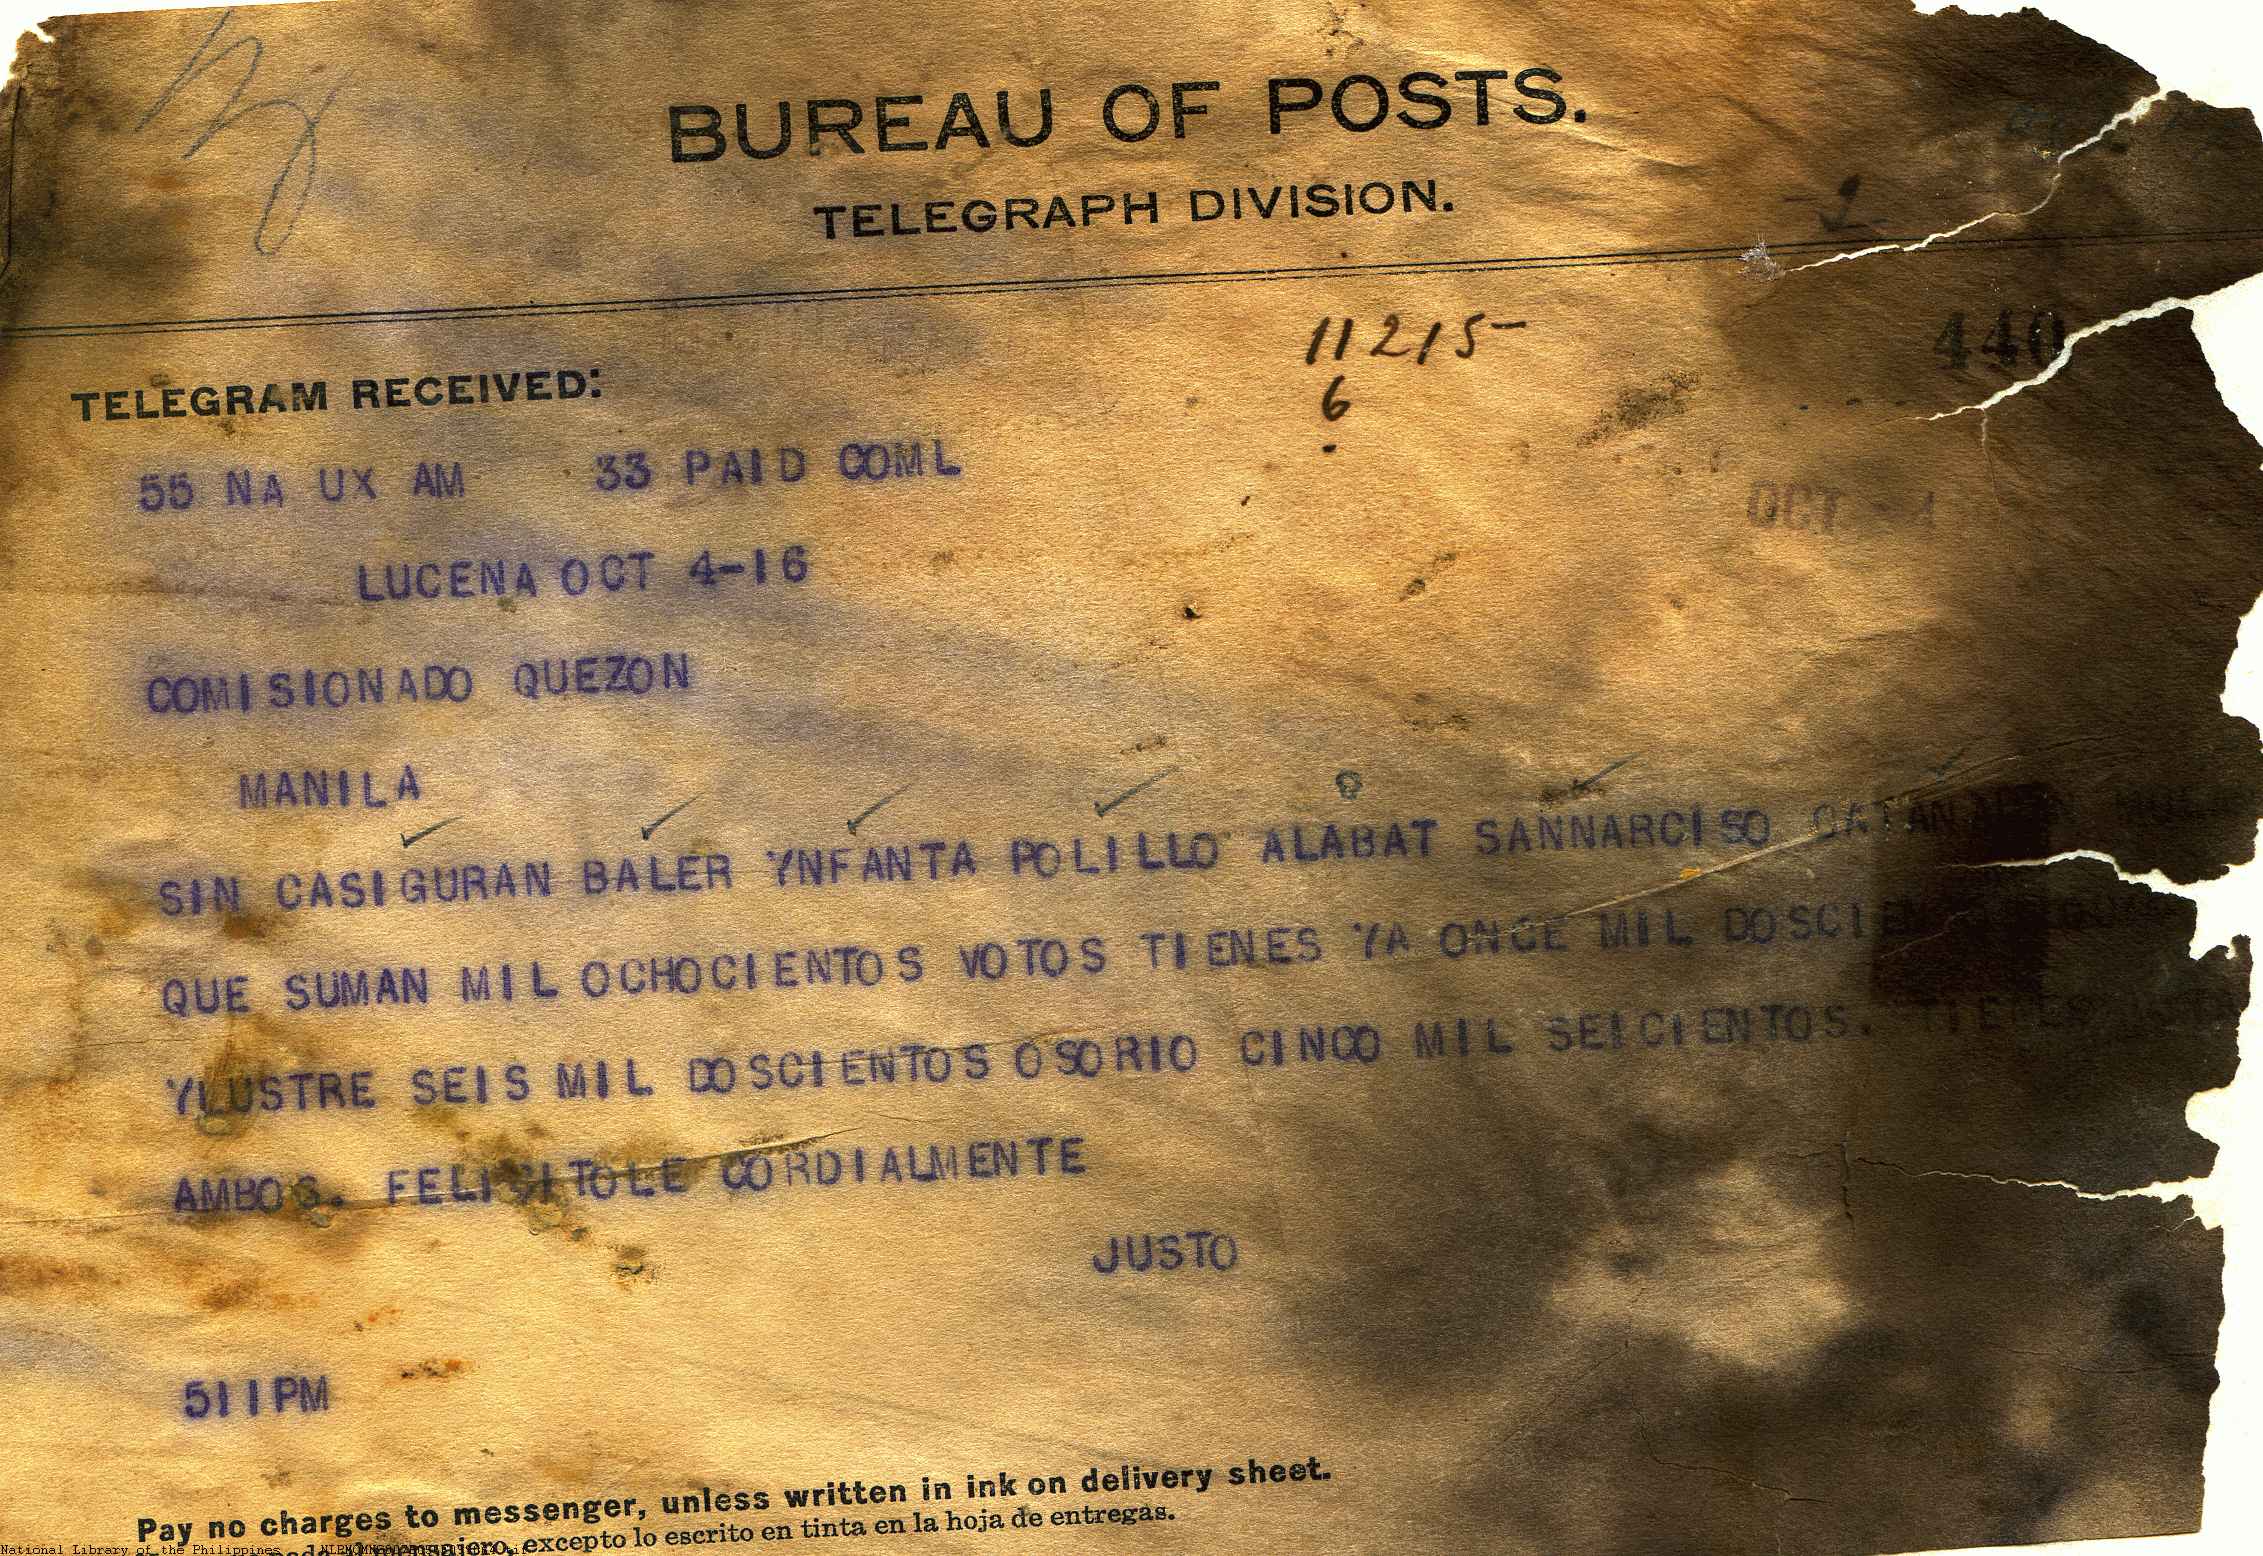 BUREAU OF POSTS.
TELEGRAPH DIVISION.
11215-
6
440
TELEGRAM RECEIVED:
55 NA UX AM 33 PAID COML
OCT 4
LUCENA OCT 4-16
COMISIONADO QUEZON
MANILA
SIN CASIGURAN BALER YNFANTA POLILLO ALABAT SANNARCISO
QUE SUMAN MIL OCHOCIENTOS VOTOS TIENES YA ONCE MIL
YLUSTRE SEIS MIL DOSCIENTOS OSORIO CINCO MIL SEICIENTOS. TIENES
AMBOS. FELICITOLE CORDIALMENTE
JUSTO
511PM
Pay no charges to messenger, unless written in ink on delivery sheet.
excepto lo escrito en tinta en la hoja de entregas.
National Library of the Philippines